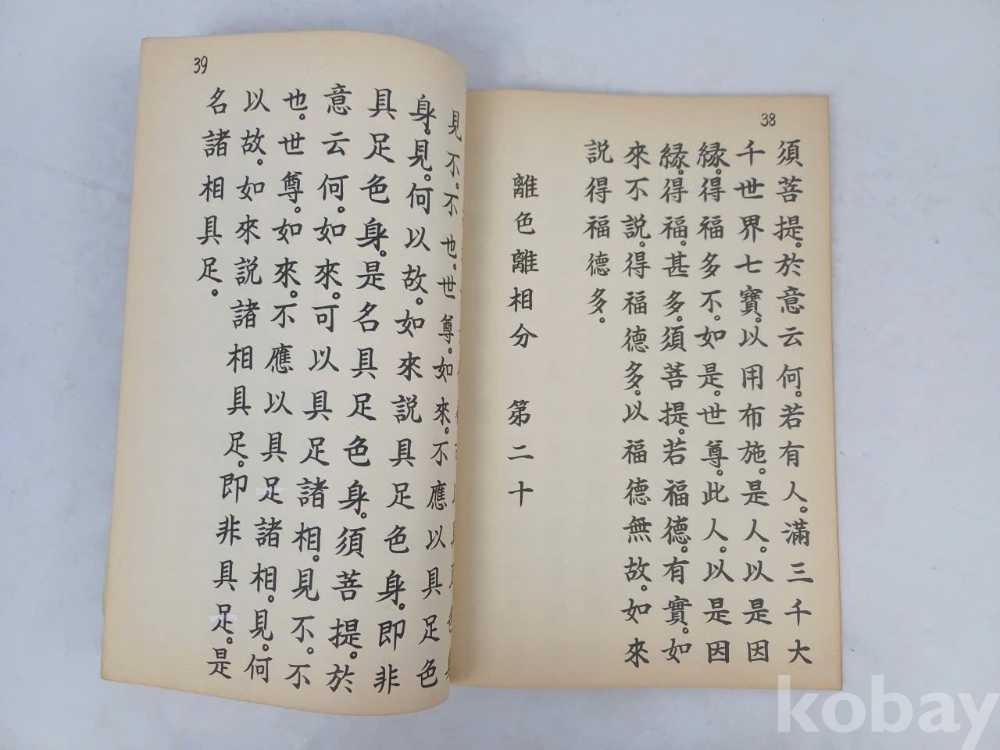 38
須菩提。於意云何。若有人。滿三千大
千世界七寶。以用布施。是人。以是因
縁。得福多不。如是。世尊。此人。以是因
縁。得福。甚多。須菩提。若福德。有實。如
來不説。得福德多。以福德無故。如來
説得福德多。
離色離相分 第二十
39
見不。不也。世尊。如來。不應以具足色
身。見。何以故。如來説具足色身。即非
具足色身。是名具足色身。須菩提。於
意云何。如來。可以具足諸相。見不。不
也。世尊。如來。不應以具足諸相。見。何
以故。如來説諸相具足。即非具足。是
名諸相具足。
kobay